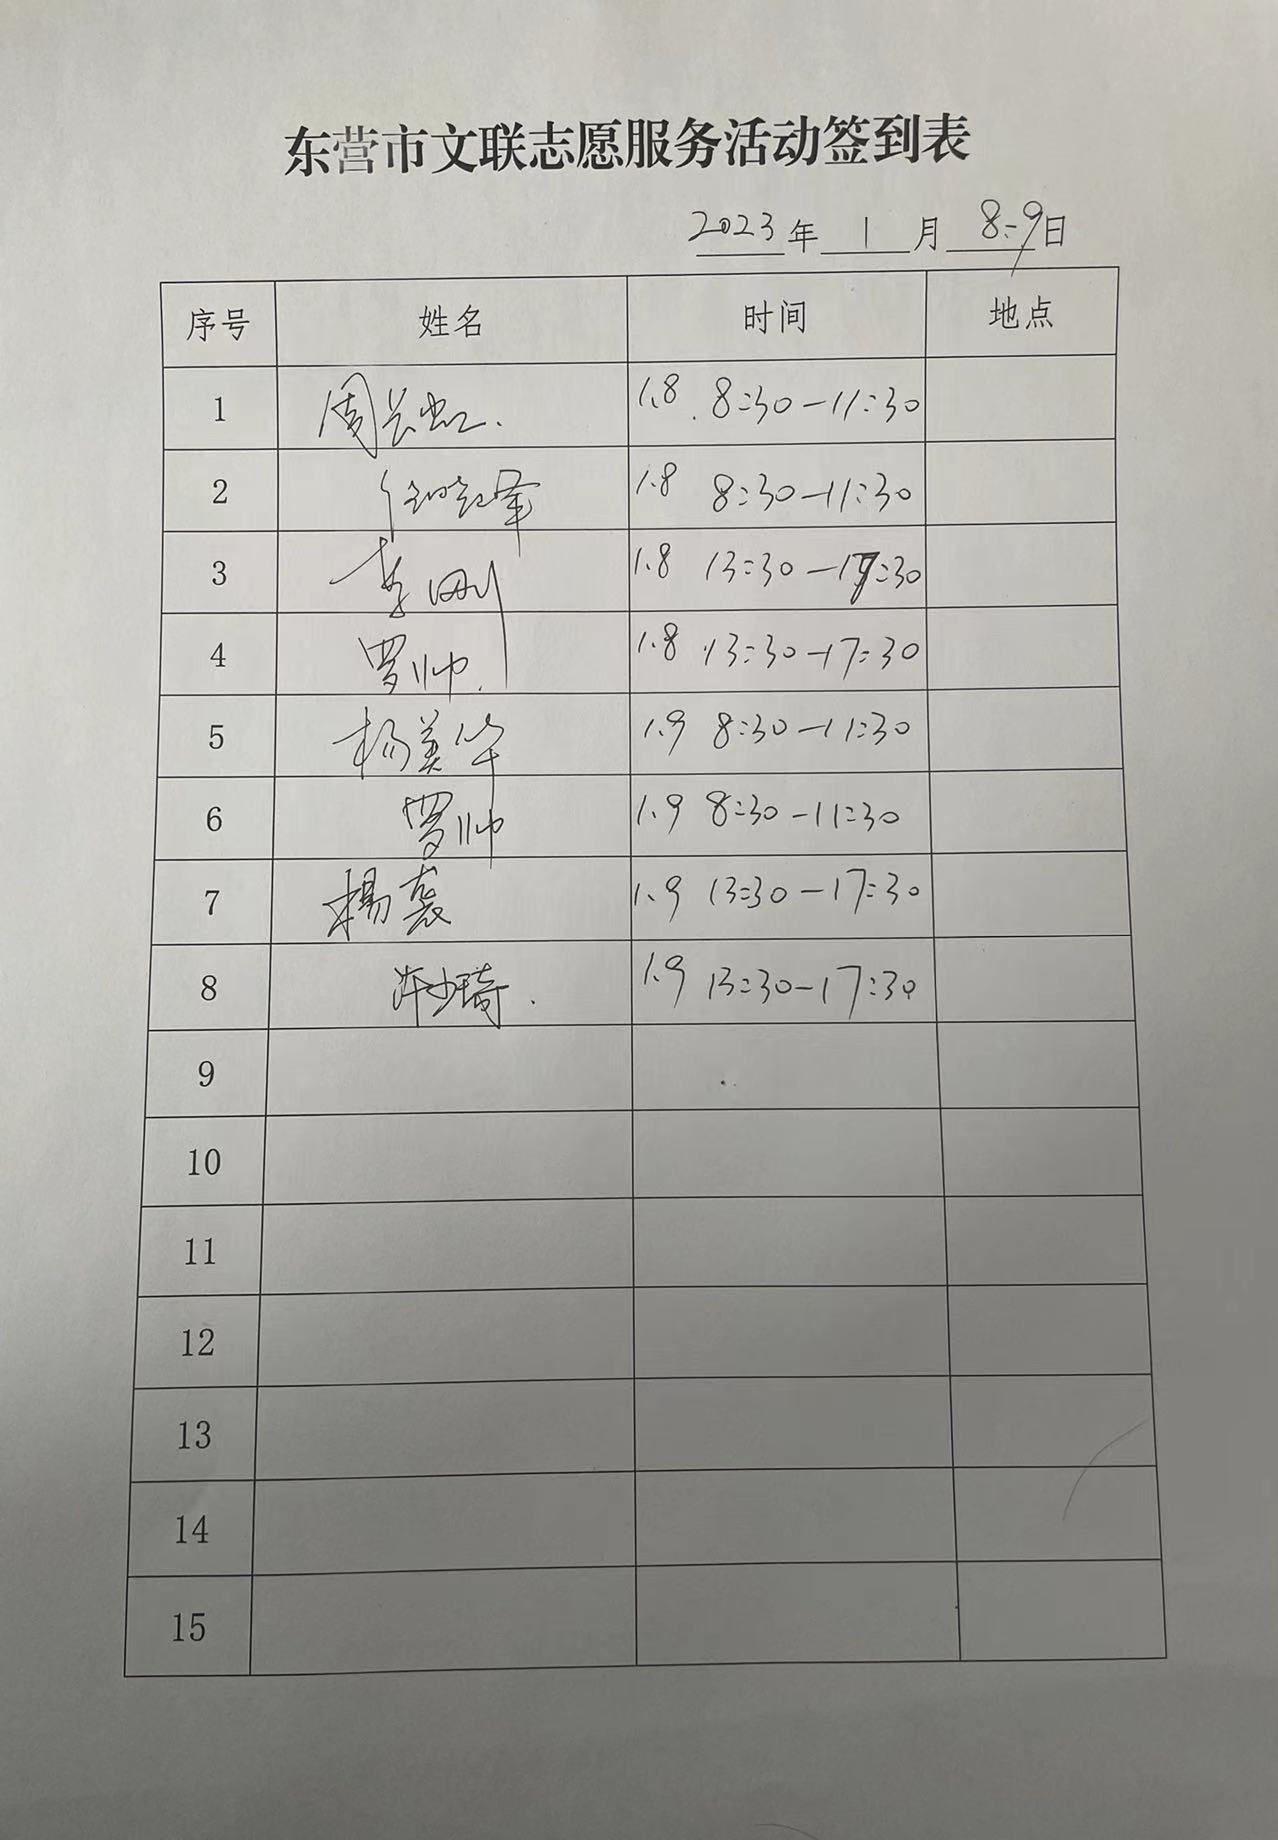 东营市文联志愿服务活动签到表
2023年 1 月 8-9日
序号 姓名 时间 地点
1 周长虹. 1.8 8:30-11:30
2 1.8 8:30-11:30
3 李刚 1.8 13:30-17:30
4 罗帅. 1.8 13:30-17:30
5 杨美华 1.9 8:30-11:30
6 罗帅 1.9 8:30-11:30
7 杨袭 1.9 13:30-17:30
8 1.9 13:30-17:30
9
10
11
12
13
14
15